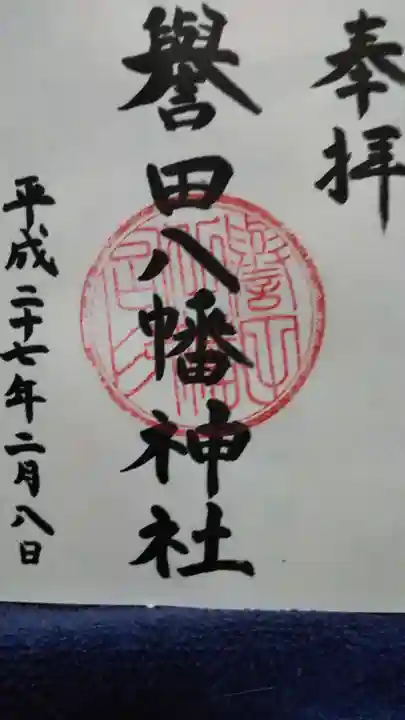 奉拝
譽田八幡神社
平成二十七年二月八日